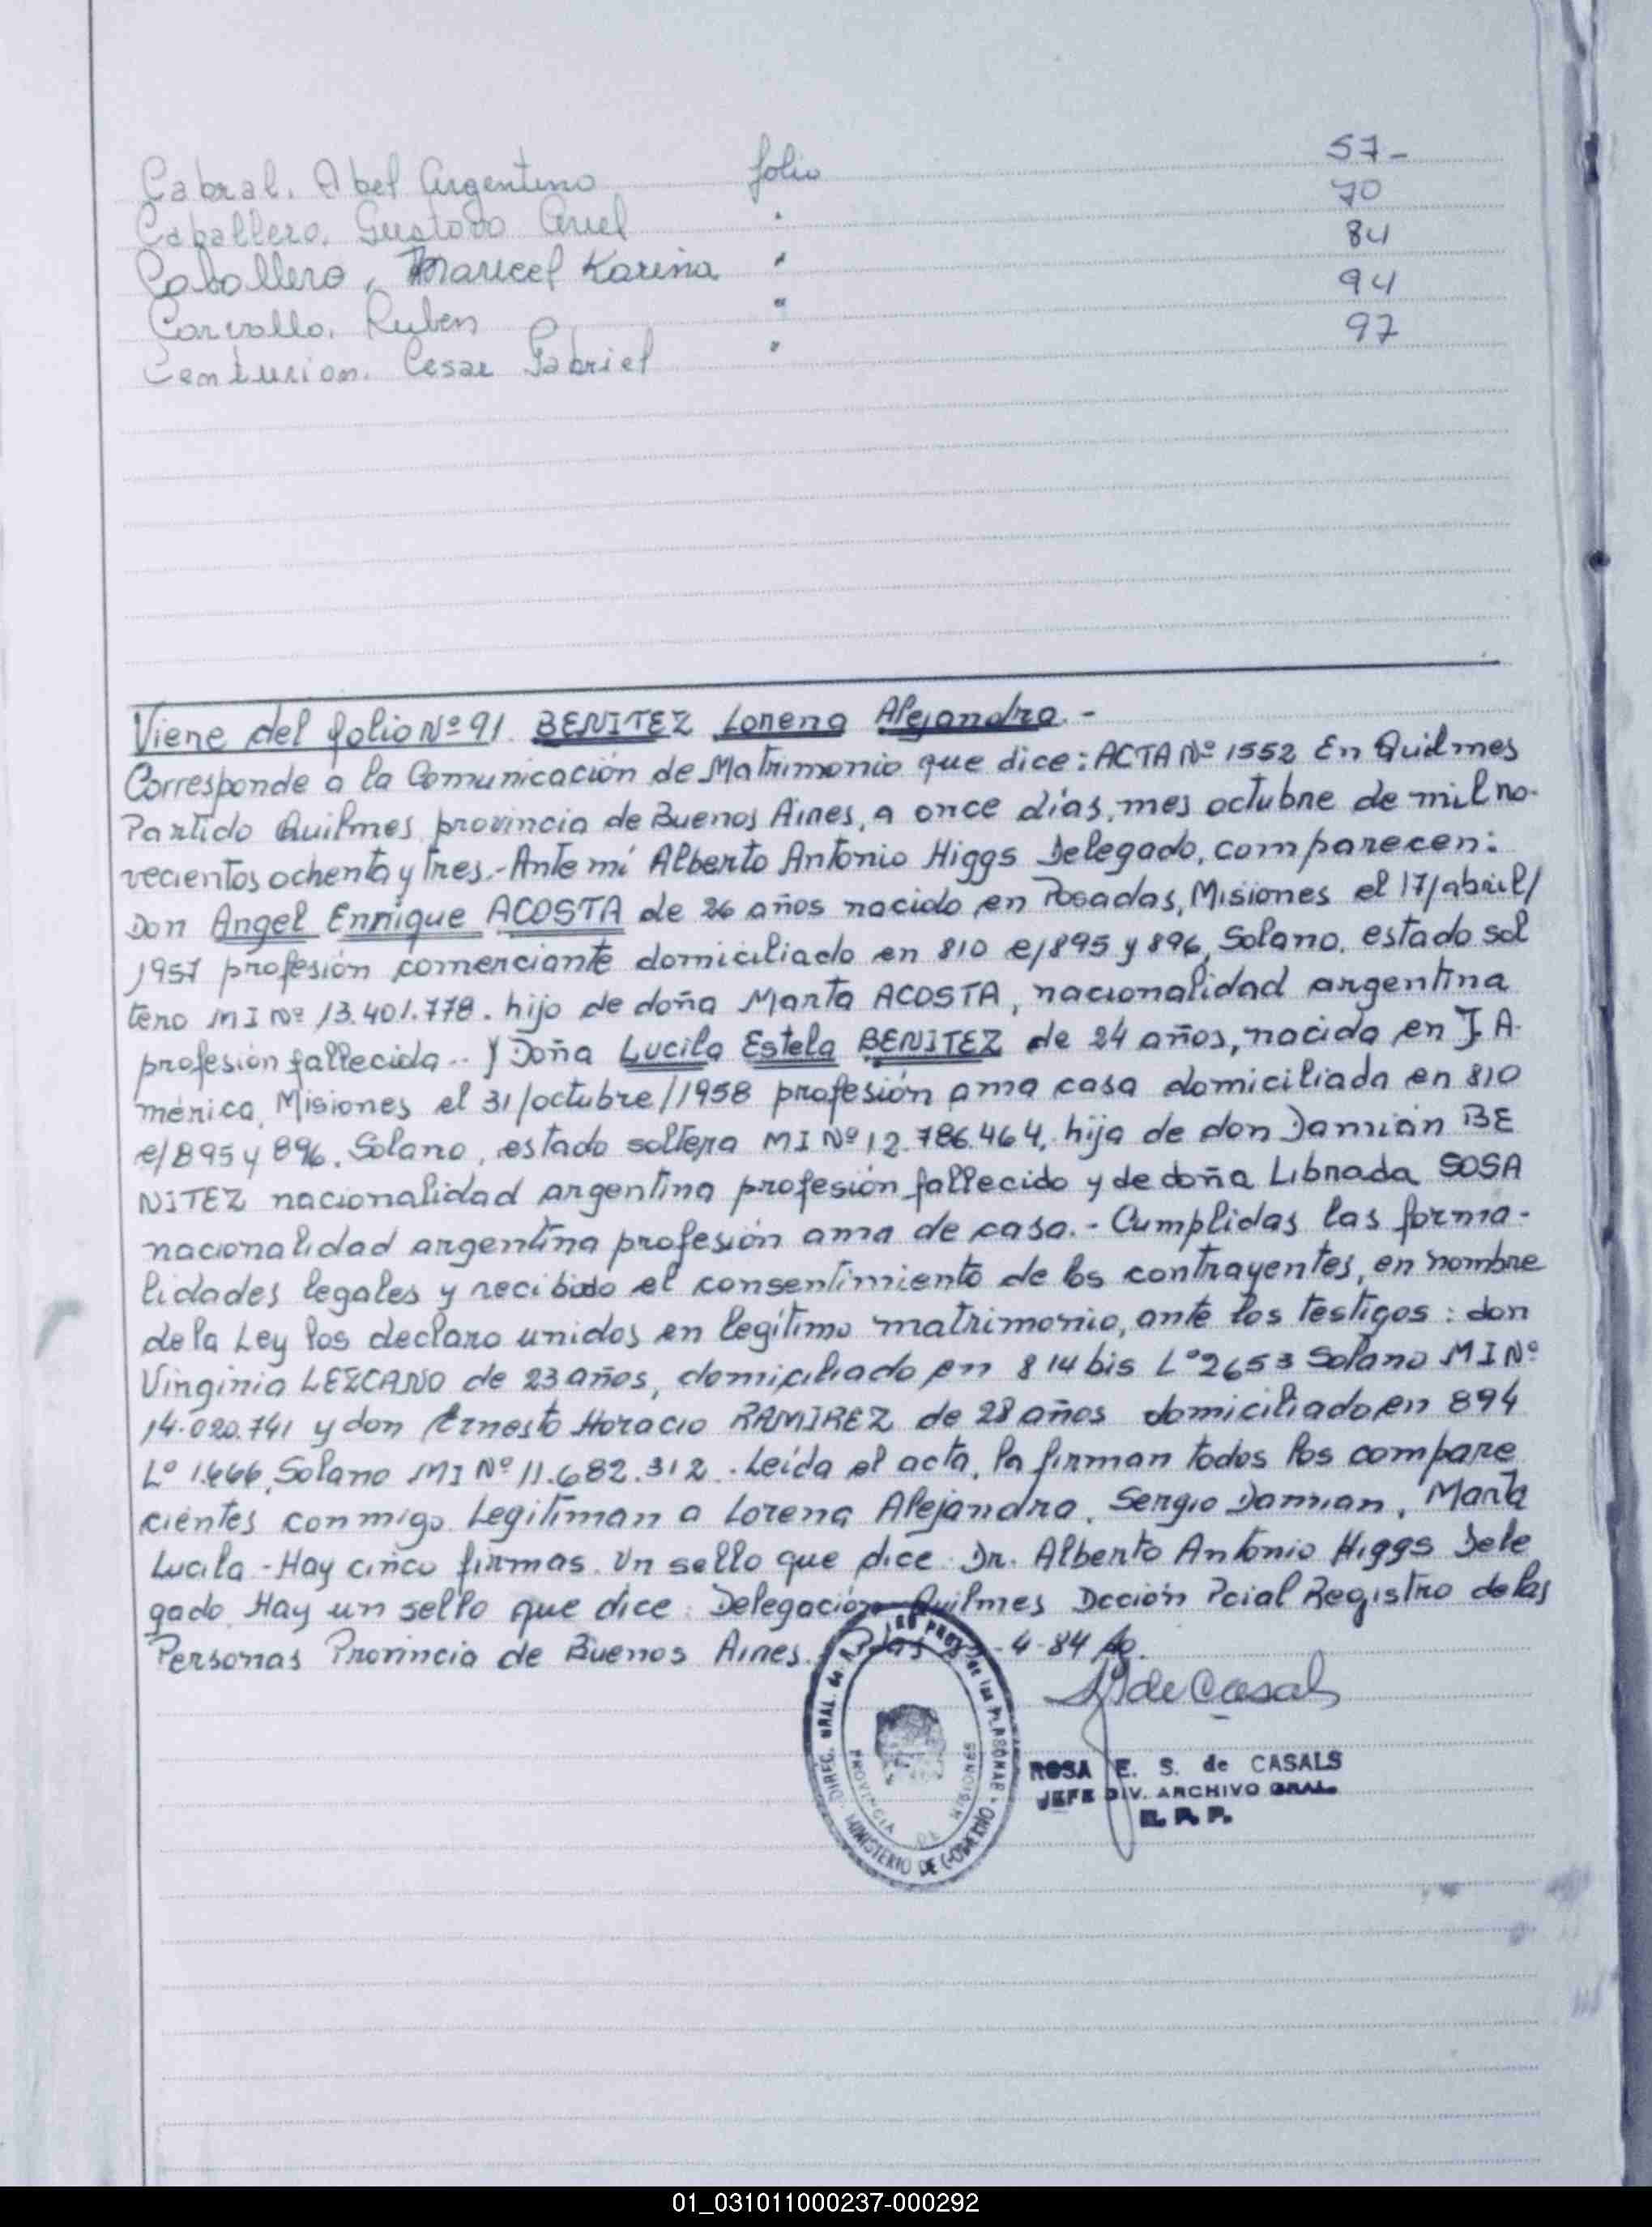 Cabral. Abel Argentino folio 57-
Caballero. Gustavo Ariel " 70
Caballero, Maricel Karina " 84
Carvallo. Ruben " 94
Centurion. Cesar Gabriel " 97
Viene del folio Nº 91 BENITEZ Lorena Alejandra.-
Corresponde a la Comunicación de Matrimonio que dice: ACTA Nº 1552 En Quilmes
Partido Quilmes provincia de Buenos Aires, a once días, mes octubre de mil no-
vecientos ochenta y tres.- Ante mí Alberto Antonio Higgs Delegado, comparecen:
Don Angel Enrique ACOSTA de 26 años nacido en Posadas, Misiones el 17/abril/
1957 profesión comerciante domiciliado en 810 e/895 y 896, Solano. estado sol
tero MI Nº 13.401.778. hijo de doña Marta ACOSTA, nacionalidad argentina
profesión fallecida.. Y Doña Lucila Estela BENITEZ de 24 años, nacida en J. A-
mérica, Misiones el 31/octubre/1958 profesión ama casa domiciliada en 810
e/895 y 896. Solano, estado soltera MI Nº 12.786.464, hija de don Damián BE
NITEZ nacionalidad argentina profesión fallecido y de doña Librada SOSA
nacionalidad argentina profesión ama de casa.- Cumplidas las forma-
lidades legales y recibido el consentimiento de los contrayentes, en nombre
de la Ley los declaro unidos en legítimo matrimonio, ante los testigos: don
Virginio LEZCANO de 23 años, domiciliado en 814 bis Lº 2653 Solano MI Nº
14.020.741 y don Ernesto Horacio RAMIREZ de 28 años domiciliado en 894
Lº 1.466, Solano MI Nº 11.682.312. Leída el acta, la firman todos los compare
cientes conmigo. Legitiman a Lorena Alejandra, Sergio Damian, Marta
Lucila - Hay cinco firmas. Un sello que dice: Dr. Alberto Antonio Higgs Dele
gado. Hay un sello que dice: Delegación Quilmes Dcción Pcial Registro de las
Personas Provincia de Buenos Aires. Pdas -4-84
de Casals
DIREC. GRAL. de las PERSONAS
PROVINCIA DE MISIONES
MINISTERIO DE GOBIERNO
ROSA E. S. de CASALS
JEFE DIV. ARCHIVO GRAL.
R. P. P.
01_031011000237-000292